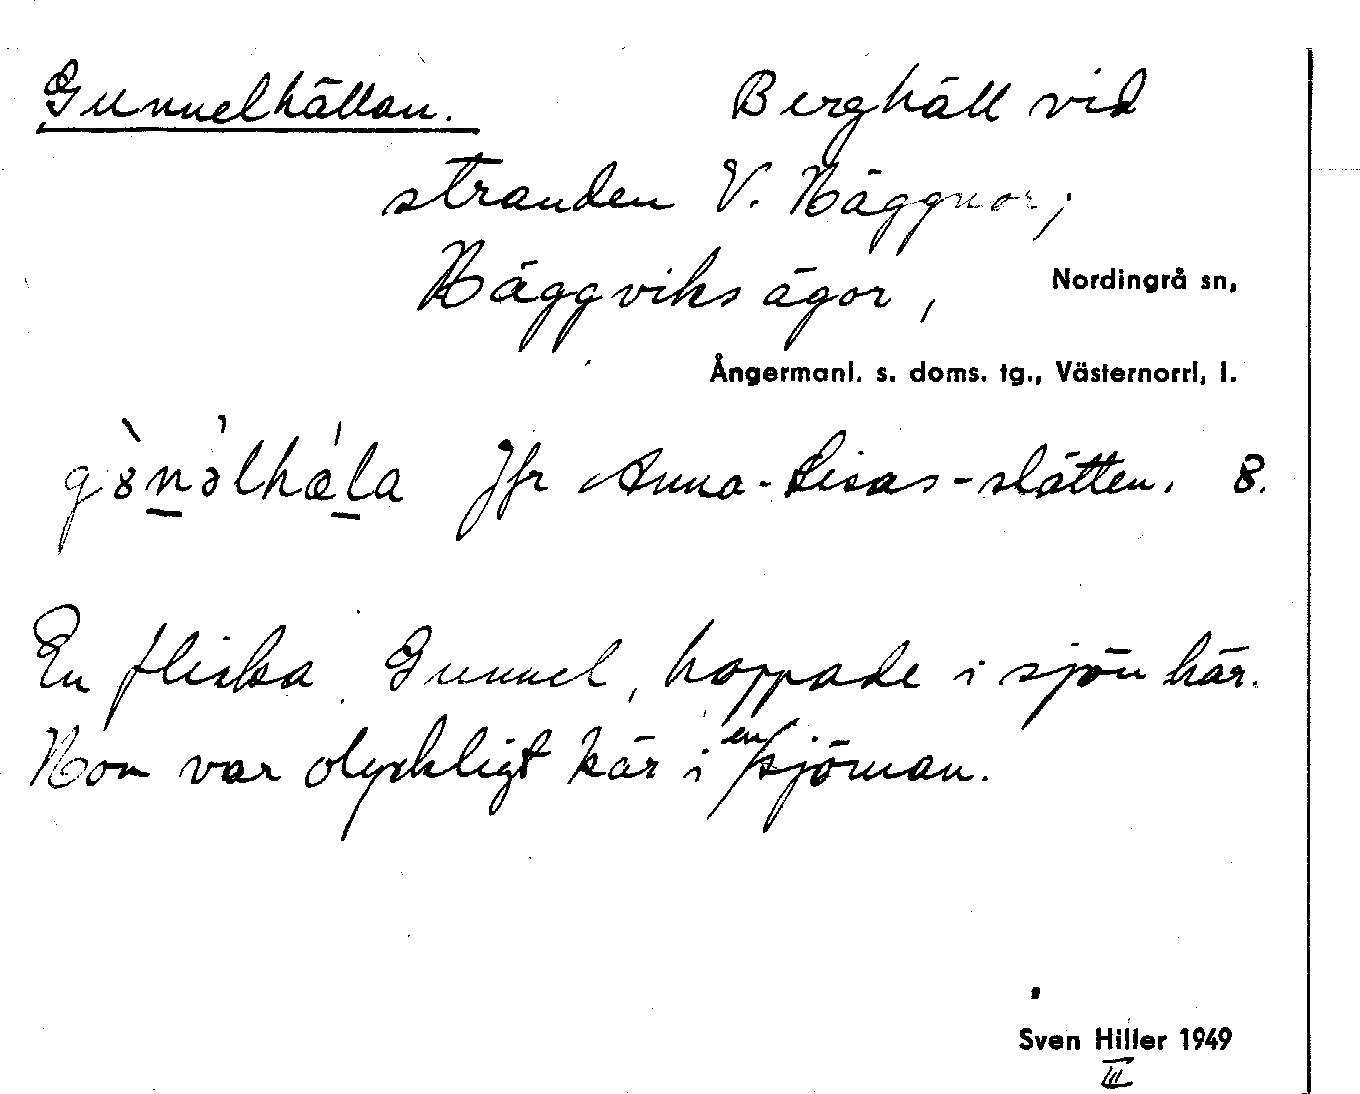 Gunnelhällan. Berghäll vid
stranden V. Häggnor;
Häggviks ägor, Nordingrå sn,
Ångermanl. s. doms. tg., Västernorrl, l.
Jfr Anna-Lisas-slåtten. 8.
En flicka, Gunnel, hoppade i sjön här.
Hon var olyckligt kär i en sjöman.
Sven Hiller 1949
III